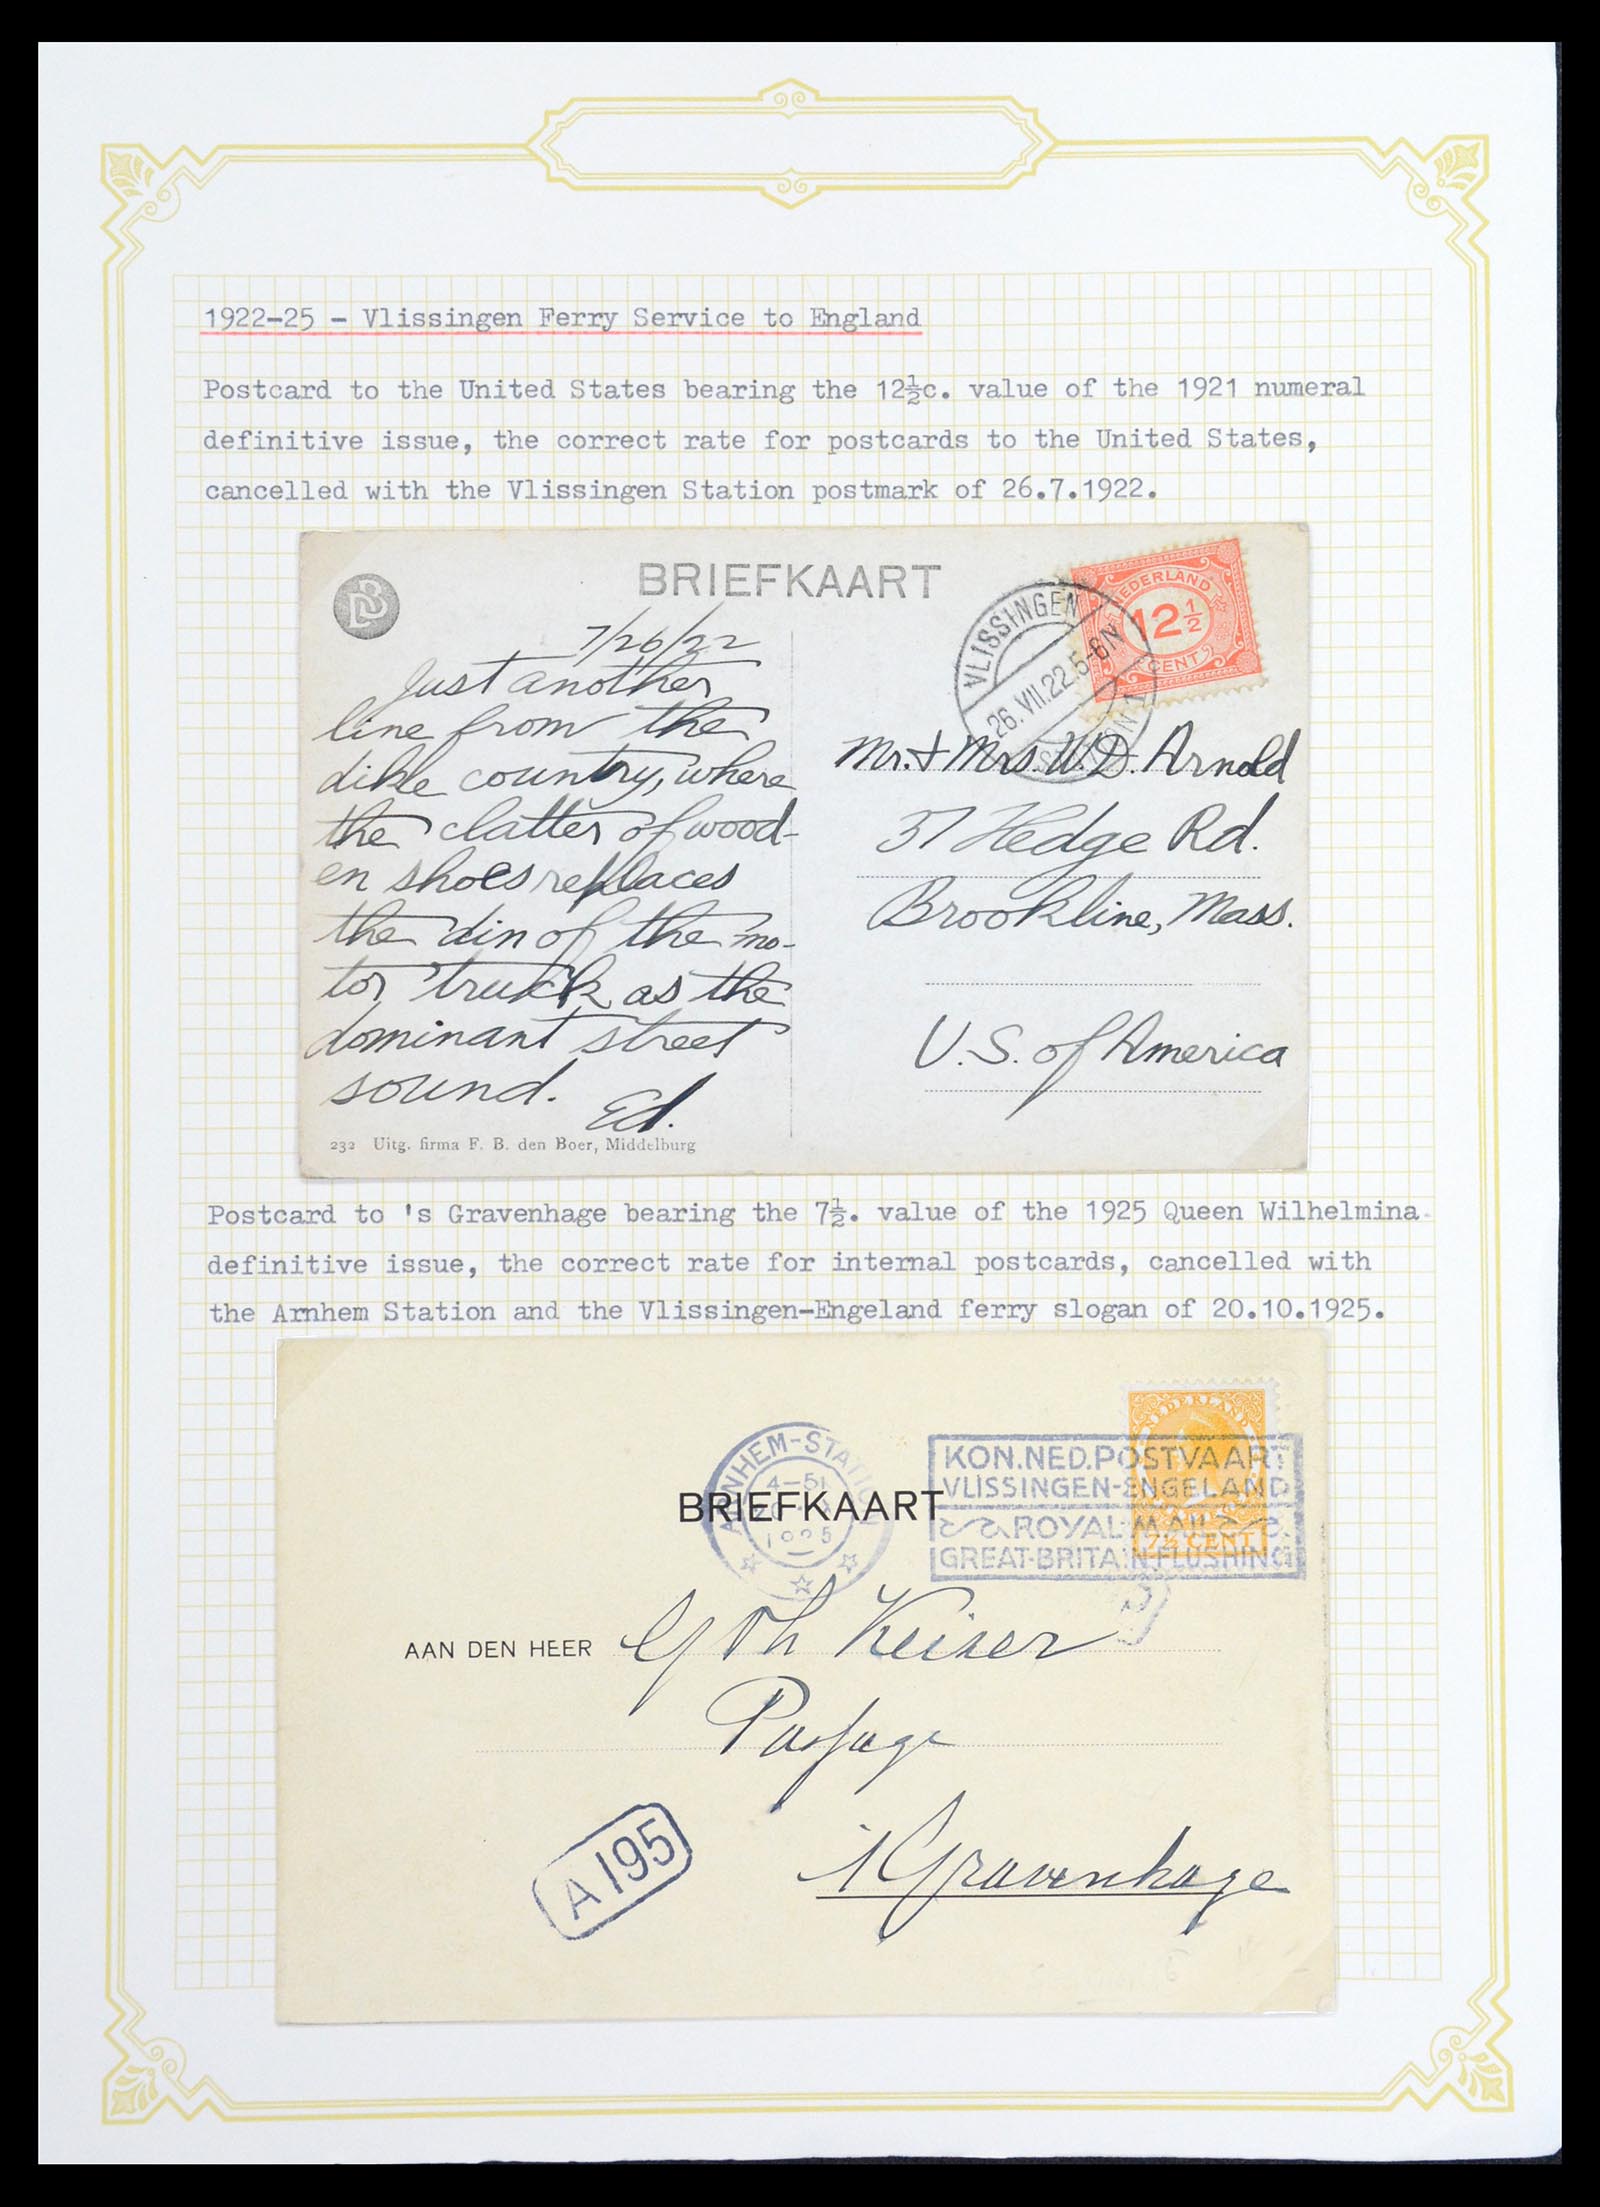 1922-25 - Vlissingen Ferry Service to England
Postcard to the United States bearing the 12½c. value of the 1921 numeral
definitive issue, the correct rate for postcards to the United States,
cancelled with the Vlissingen Station postmark of 26.7.1922.
BRIEFKAART
DB
NEDERLAND
12½
CENT
VLISSINGEN
26.VII.22.5-6N
STATION 1
7/26/22
Just another
line from the
dike country, where
the clatter of wood-
en shoes replaces
the din of the mo-
tor truck as the
dominant street
sound.
Ed.
Mr. + Mrs. W. D. Arnold
37 Hedge Rd.
Brookline, Mass.
U. S. of America
232 Uitg. firma F. B. den Boer, Middelburg
Postcard to 's Gravenhage bearing the 7½. value of the 1925 Queen Wilhelmina
definitive issue, the correct rate for internal postcards, cancelled with
the Arnhem Station and the Vlissingen-Engeland ferry slogan of 20.10.1925.
NEDERLAND
7½ CENT
ARNHEM-STATION
1925
KON.NED.POSTVAART
VLISSINGEN-ENGELAND
ROYAL MAIL
GREAT-BRITAIN-FLUSHING
BRIEFKAART
AAN DEN HEER
Keizer
Passage
's Gravenhage
A195